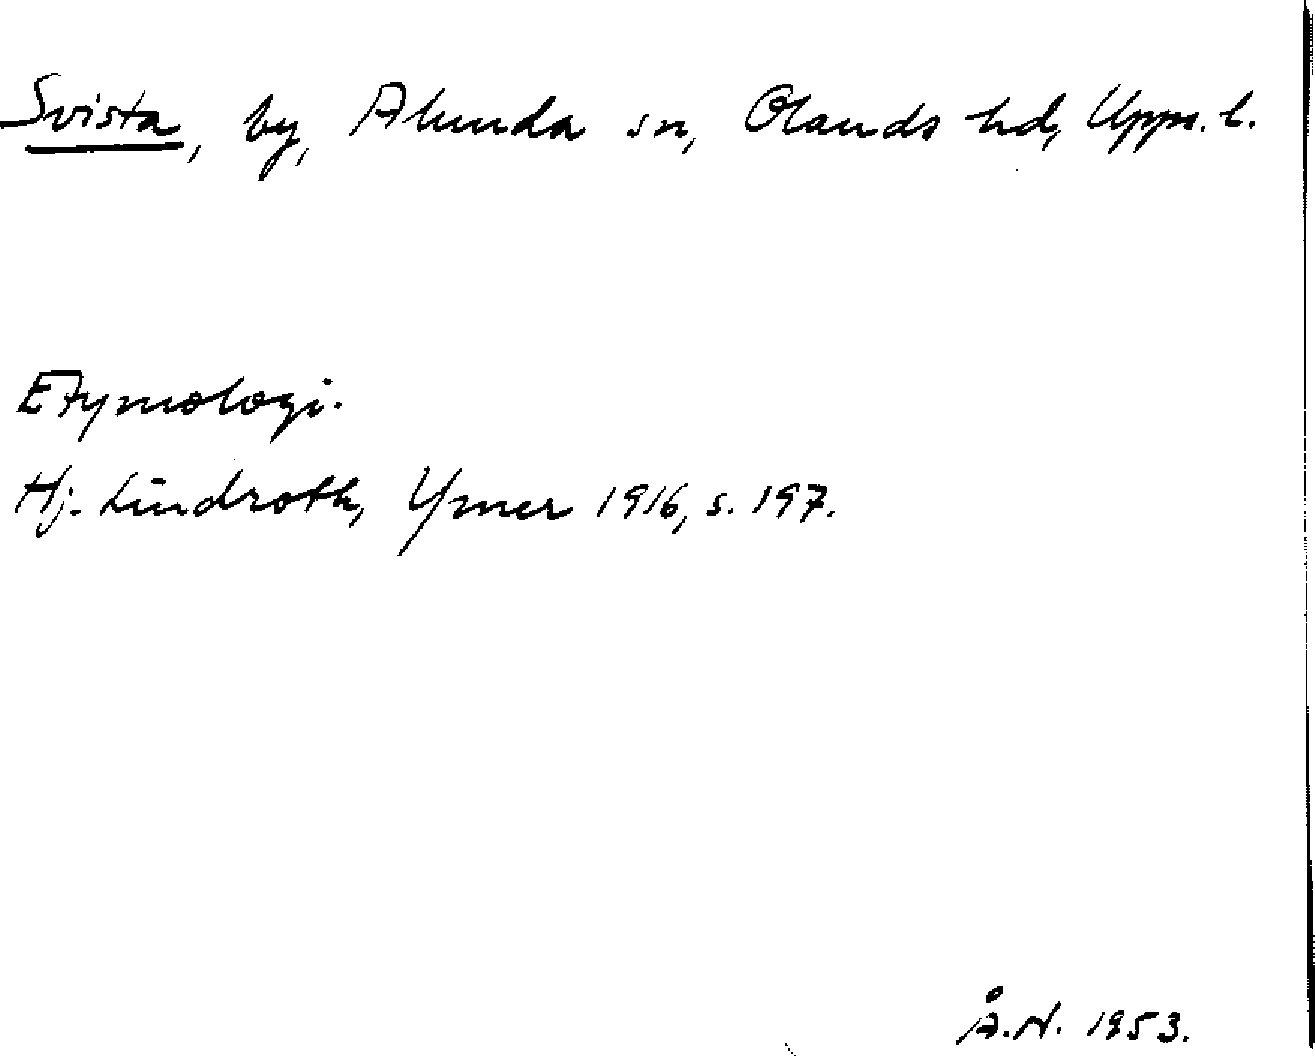 Svista, by, Alunda sn, Olands hd, Upps. l.
Etymologi.
Hj. Lindroth, Ymer 1916, s. 197.
Å.N. 1953.